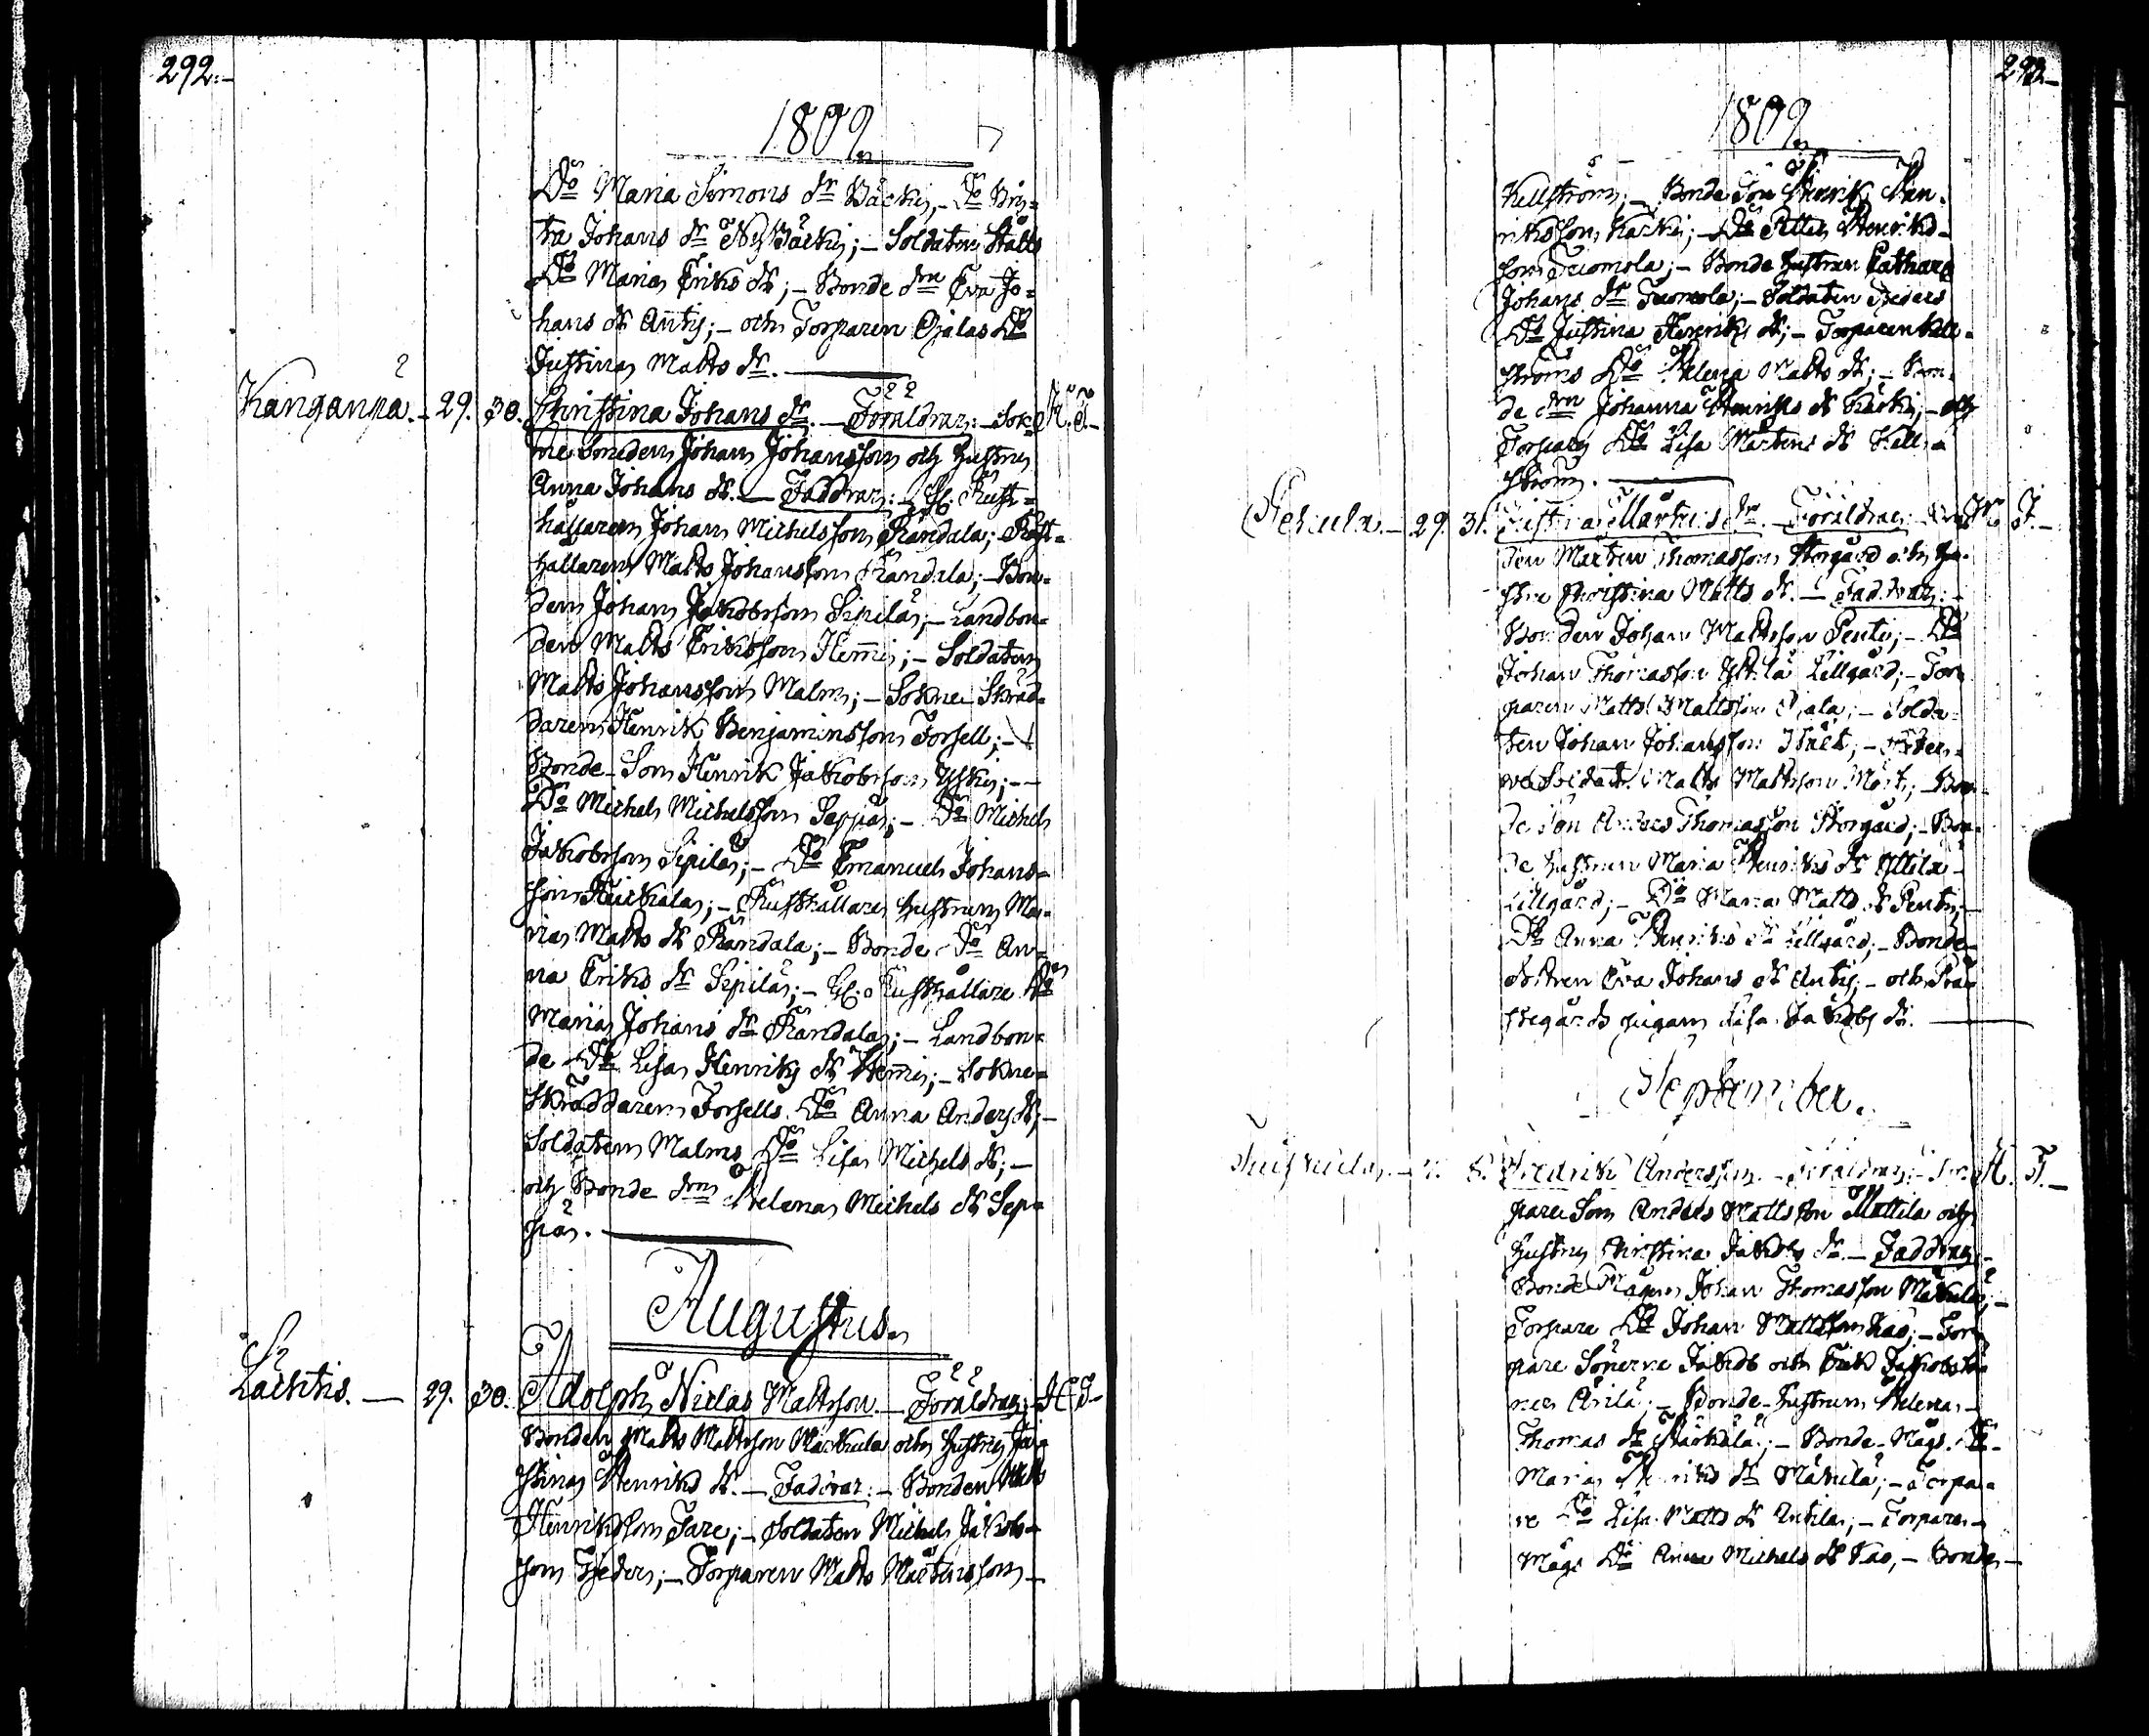 292.
1809.
Do Maria Simons dr Bäcki; – Do Bri=
ta Johans dr Nybäcki; – Soldaten Ståls
Do Maria Eriks dr; – Bonde drn Eva Jo=
hans dr Antti; – och Torparen Ojalas Do
Justina Matts dr.
Kanganpä. – 29. 30. Christina Johans dr. – Föräldrar: – Sok= H. F.
ne Smeden Johan Johansson och hustru
Anna Johans dr. – Faddrar: – Rust=
hållaren Johan Michelsson Randala; – Rust=
hållaren Matts Johansson Randala; – Bon=
den Johan Jakobsson Sipilä; – Landbon=
den Matts Eriksson Hemmi; – Soldaten
Matts Johansson Malm; – Sokne Skräd=
daren Henrik Benjaminsson Forsell; –
Bonde Son Henrik Jakobsson Yski; –
Do Michel Michelsson Seppä; – Do Michel
Jakobsson Sipilä; – Do Emanuel Johans=
son; – Rusthållare hustrun Ma=
ria Matts dr Randala; – Bonde Do An=
na Eriks dr Sipilä; – Rusthållare Do
Maria Johans dr Randala; – Landbon=
de Do Lisa Henriks dr Hemmi; – Sokne=
Skräddaren Forsells Do Anna Anders dr; –
Soldaten Malms Do Lisa Michels dr; –
och Bonde drn Helena Michels dr Sep=
pä.
Augustus.
Lachtis. – 29. 30. Adolph Niclas Mattsson. – Föräldrar: – H. F.
Bonden Matts Mattsson Markula och hustru Ju=
stina Henriks dr. – Faddrar: – Bonden Matts
Henriksson Jare; – Soldaten Michel Jakobs=
son Fjeder; – Torparen Matts Mårtensson
1809.
Kellström; – Bonde Son Henrik Hen=
riksson Karki; – Do Petter Henriks=
son Tuomola; – Bonde hustrun Cathar.
Johans dr Tuomola; – Soldaten Fjeders
Do Justina Henriks dr; – Torparen Kell=
ströms Do Helena Matts dr; – Bon=
de drn Johanna Henriks dr Karki; – och
Torpare Do Lisa Mårtens dr Kell=
ström.
29. 31. Justina Mårtens dr. – Föräldrar: – F.
den Mårten Thomasson Storgård och hu=
stru Christina Matts dr. – Faddrar: –
Bonden Johan Mattsson Pentti; – Do
Johan Thomasson Lillgård; – Tor=
paren Matts Mattsson Ojala; – Solda=
ten Johan Johansson Stål; –
Soldat. Matts Mattsson Mört; – Bon=
de Son Anders Thomasson Storgård; – Bon=
de hustrun Maria Henriks dr
Lillgård; – Do Maria Matts dr Pentti; –
Do Anna Henriks dr Lillgård; – Bonde
dottren Eva Johans dr Antti; – och Prä=
stegårds pigan Lisa Jakobs dr.
September.
Fredrik Andersson. – Föräldrar: – Tor= H. F.
pare Son Anders Mattsson Mattila och
hustru Christina Jakobs dr. – Faddrar: –
Bonde Mågen Johan Thomasson Mäkelä; –
Torpare Do Johan Mattsson Kao; – Tor=
pare Sönerne Jakob och Erik Jakobs Sö=
ner Anila; – Bonde hustrun Helena
Thomas dr Mäkelä; – Bonde Mågs Do
Maria Henriks dr Mäkelä; – Torpa=
re Do Lisa Matts dr Antila; – Torpare
Mågs Do Anna Michels dr Kao; – Bonde